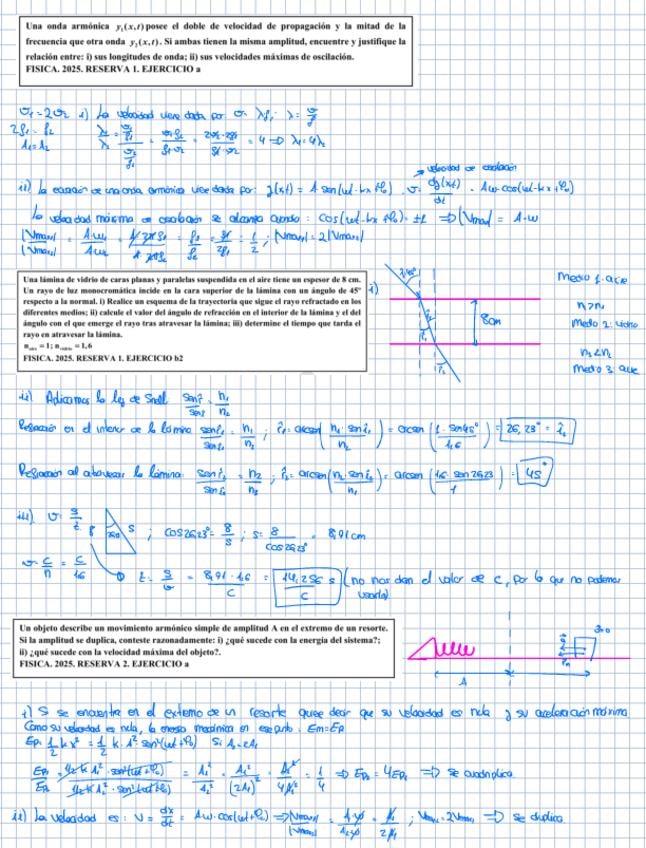 Una onda armónica y₁(x,t) posee el doble de velocidad de propagación y la mitad de la
frecuencia que otra onda y₂(x,t). Si ambas tienen la misma amplitud, encuentre y justifique la
relación entre: i) sus longitudes de onda; ii) sus velocidades máximas de oscilación.
FISICA. 2025. RESERVA 1. EJERCICIO a
v₁ = 2v₂ i) La velocidad viene dada por: v = λf ; λ = v/f
2f₁ = f₂
A₁ = A₂
= 4 => λ₁ = 4λ₂
velocidad de oscilación
ii) la ecuación de una onda armónica viene dada por: y(x,t) = A sen(ωt - kx + φ₀) v = dy(x,t)/dt = Aω·cos(ωt - kx + φ₀)
La velocidad máxima de oscilación se alcanza cuando: cos(ωt - kx + φ₀) = ±1 => |Vmax| = A·ω
Una lámina de vidrio de caras planas y paralelas suspendida en el aire tiene un espesor de 8 cm.
Un rayo de luz monocromática incide en la cara superior de la lámina con un ángulo de 45º
respecto a la normal. i) Realice un esquema de la trayectoria que sigue el rayo refractado en los
diferentes medios; ii) calcule el valor del ángulo de refracción en el interior de la lámina y el del
ángulo con el que emerge el rayo tras atravesar la lámina; iii) determine el tiempo que tarda el
rayo en atravesar la lámina.
n aire = 1; n vidrio = 1,6
FISICA. 2025. RESERVA 1. EJERCICIO b2
i)
8cm
Medio 1: aire
Medio 2: vidrio
Medio 3: aire
ii) Aplicamos la ley de Snell
Refracción en el interior de la lámina
= arcsen (1·sen45º / 1,6) = 26,23º
Refracción al atravesar la lámina:
= arcsen (1,6 sen 26,23 / 1) = 45º
iii) v = s/t
8 S
; cos26,23º = 8/s ; s = 8/cos26,23º = 8,91 cm
v = c/n = c/1,6
t = s/v = 8,91·1,6/c = 14,256/c s (no nos dan el valor de c, por lo que no podemos
usarlo)
Un objeto describe un movimiento armónico simple de amplitud A en el extremo de un resorte.
Si la amplitud se duplica, conteste razonadamente: i) ¿qué sucede con la energía del sistema?;
ii) ¿qué sucede con la velocidad máxima del objeto?.
FISICA. 2025. RESERVA 2. EJERCICIO a
A
i) Si se encuentra en el extremo de un resorte quiere decir que su velocidad es nula y su aceleración máxima
Como su velocidad es nula, la energía mecánica en ese punto: Em = Ep
Ep = 1/2 k x² = 1/2 k·A²·sen²(ωt + φ₀) Si A₂ = 2A₁
= 1/4 => Ep₂ = 4Ep₁ => se cuadruplica
ii) La velocidad es: V = dx/dt = Aω·cos(ωt + φ₀)
=> se duplica